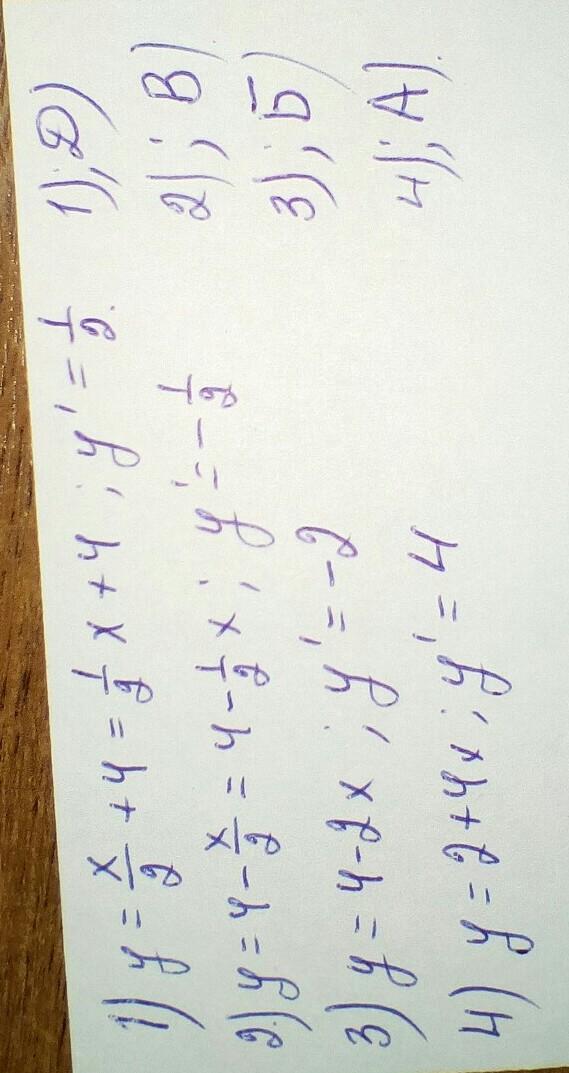 1) y = x/2 + 4 = 1/2 x + 4 ; y' = 1/2. 1); D)
2) y = 4 - x/2 = 4 - 1/2 x ; y' = - 1/2 2); В)
3) y = 4 - 2x ; y' = -2 3); Б)
4) y = 2 + 4x ; y' = 4 4); А).